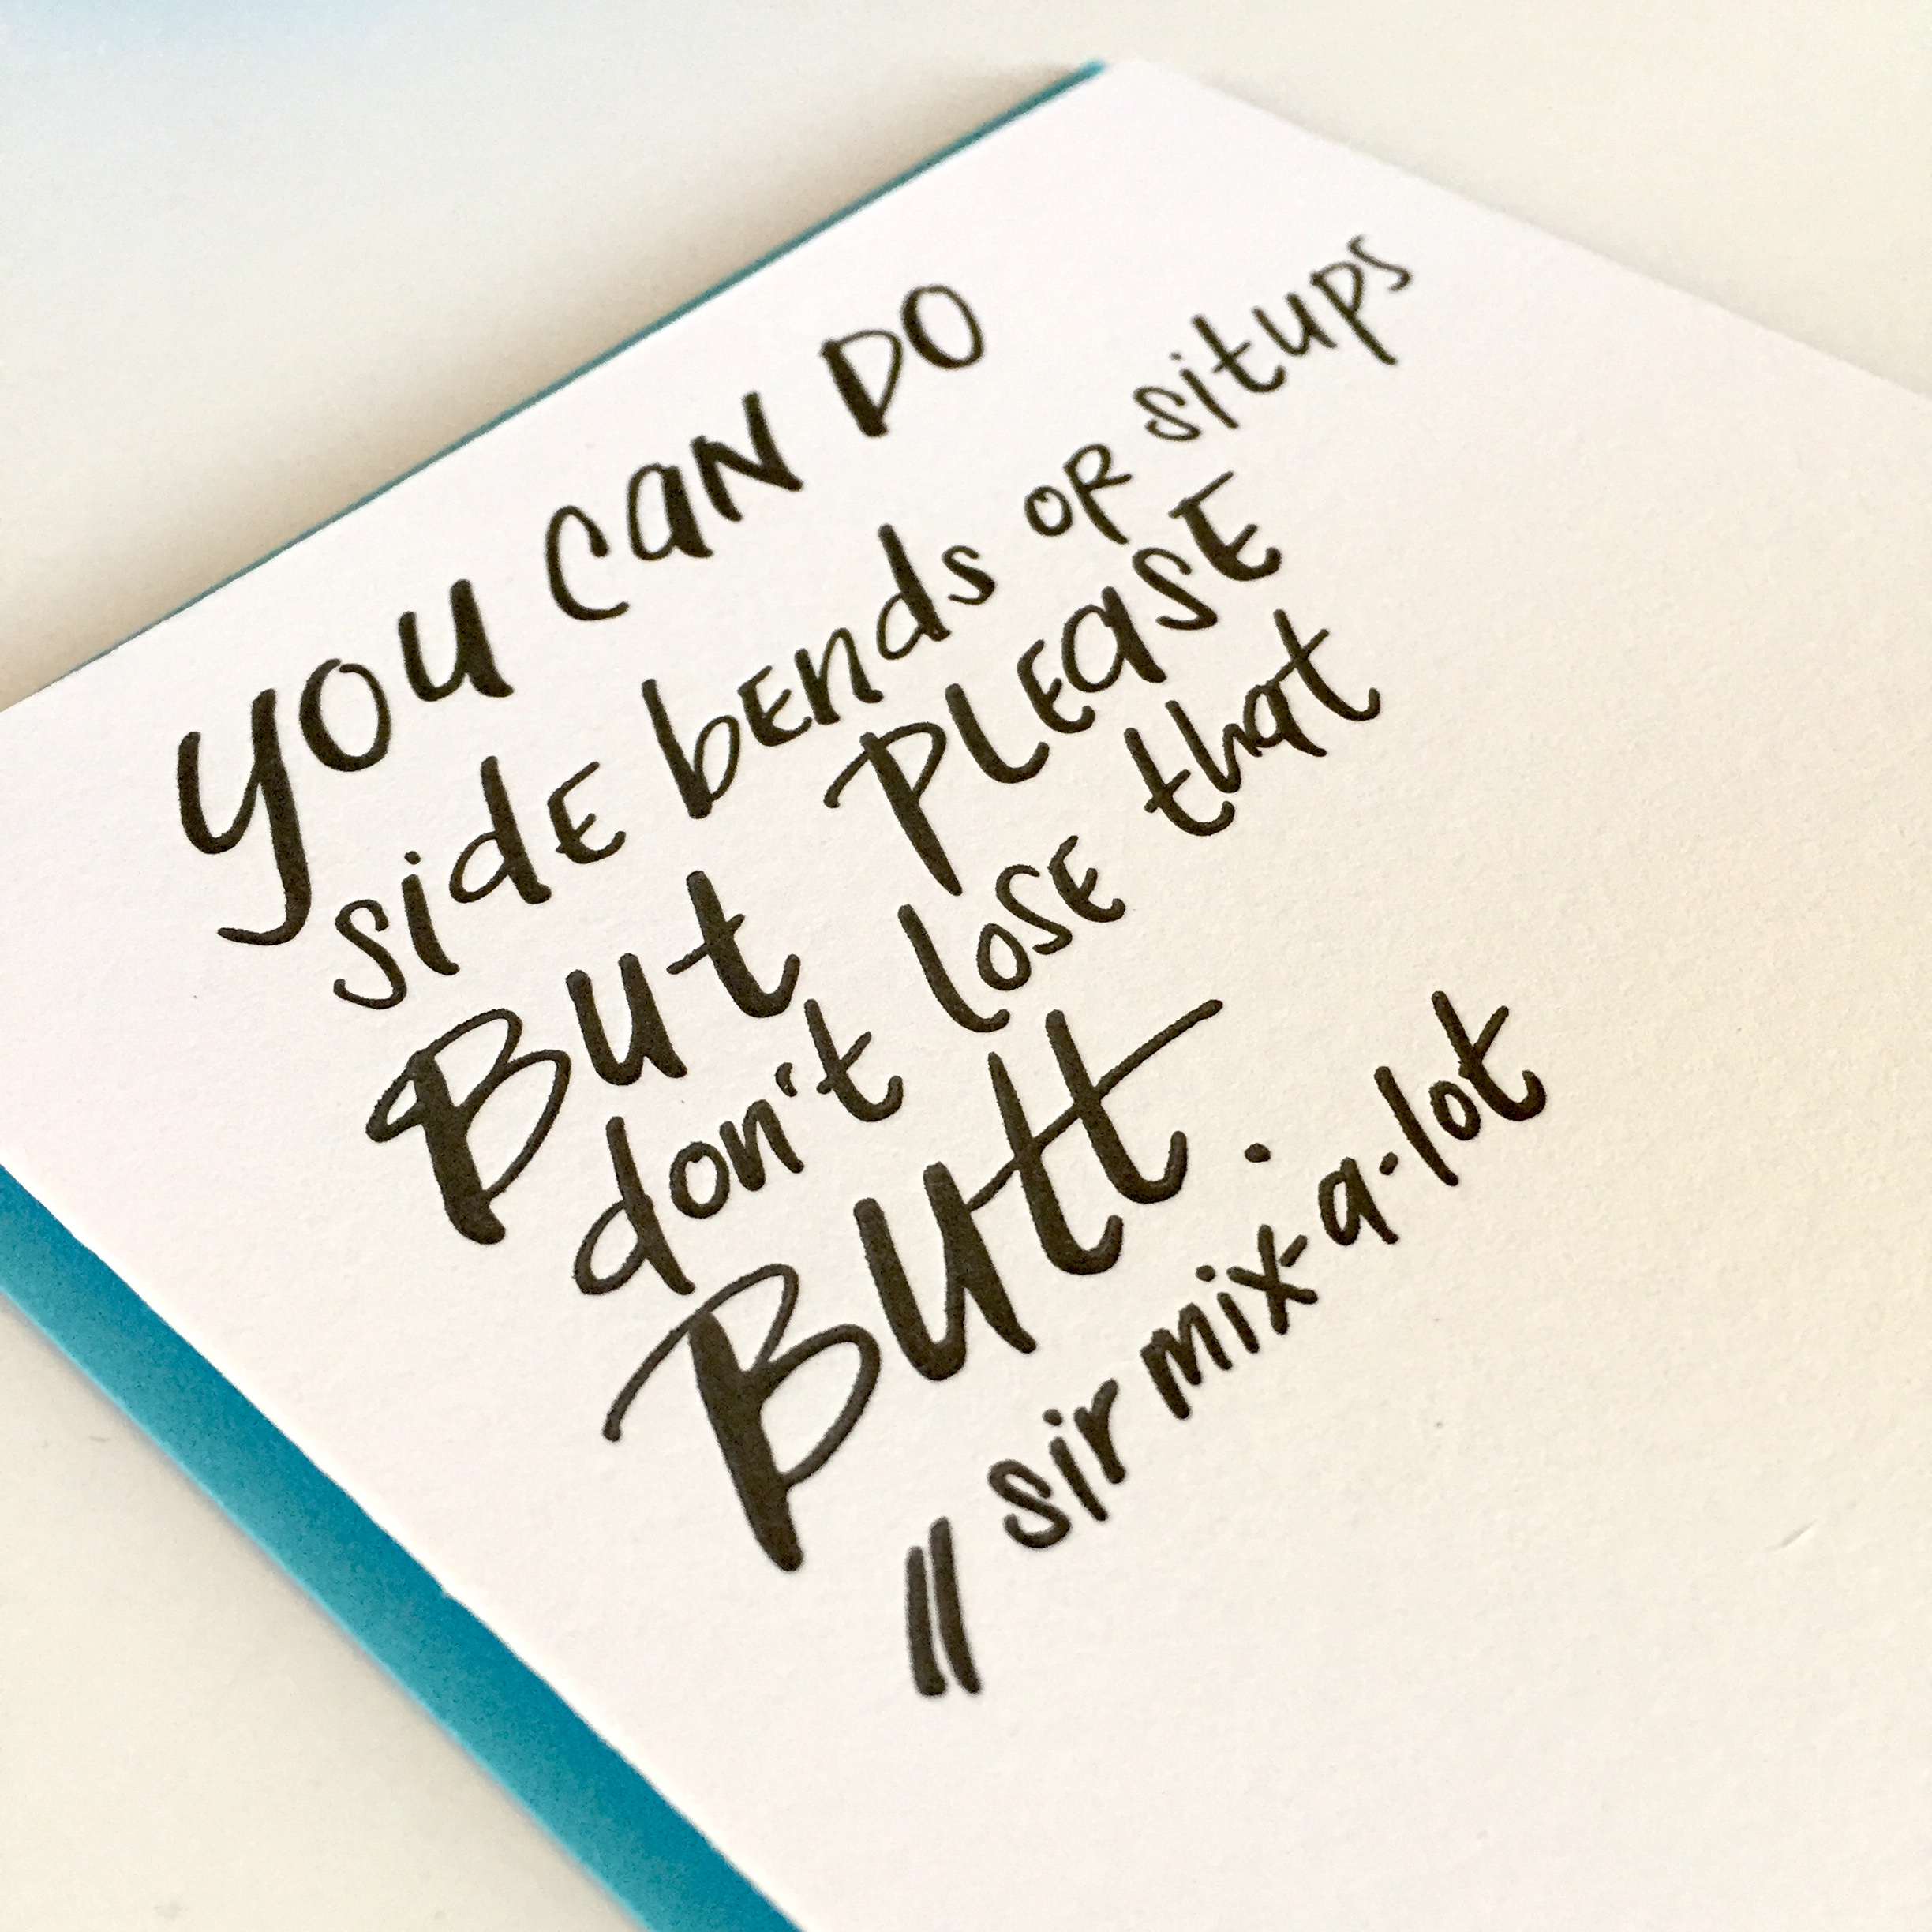 You can DO
side bends or situps
But please
don't lose that
Butt.
|| sir mix-a-lot